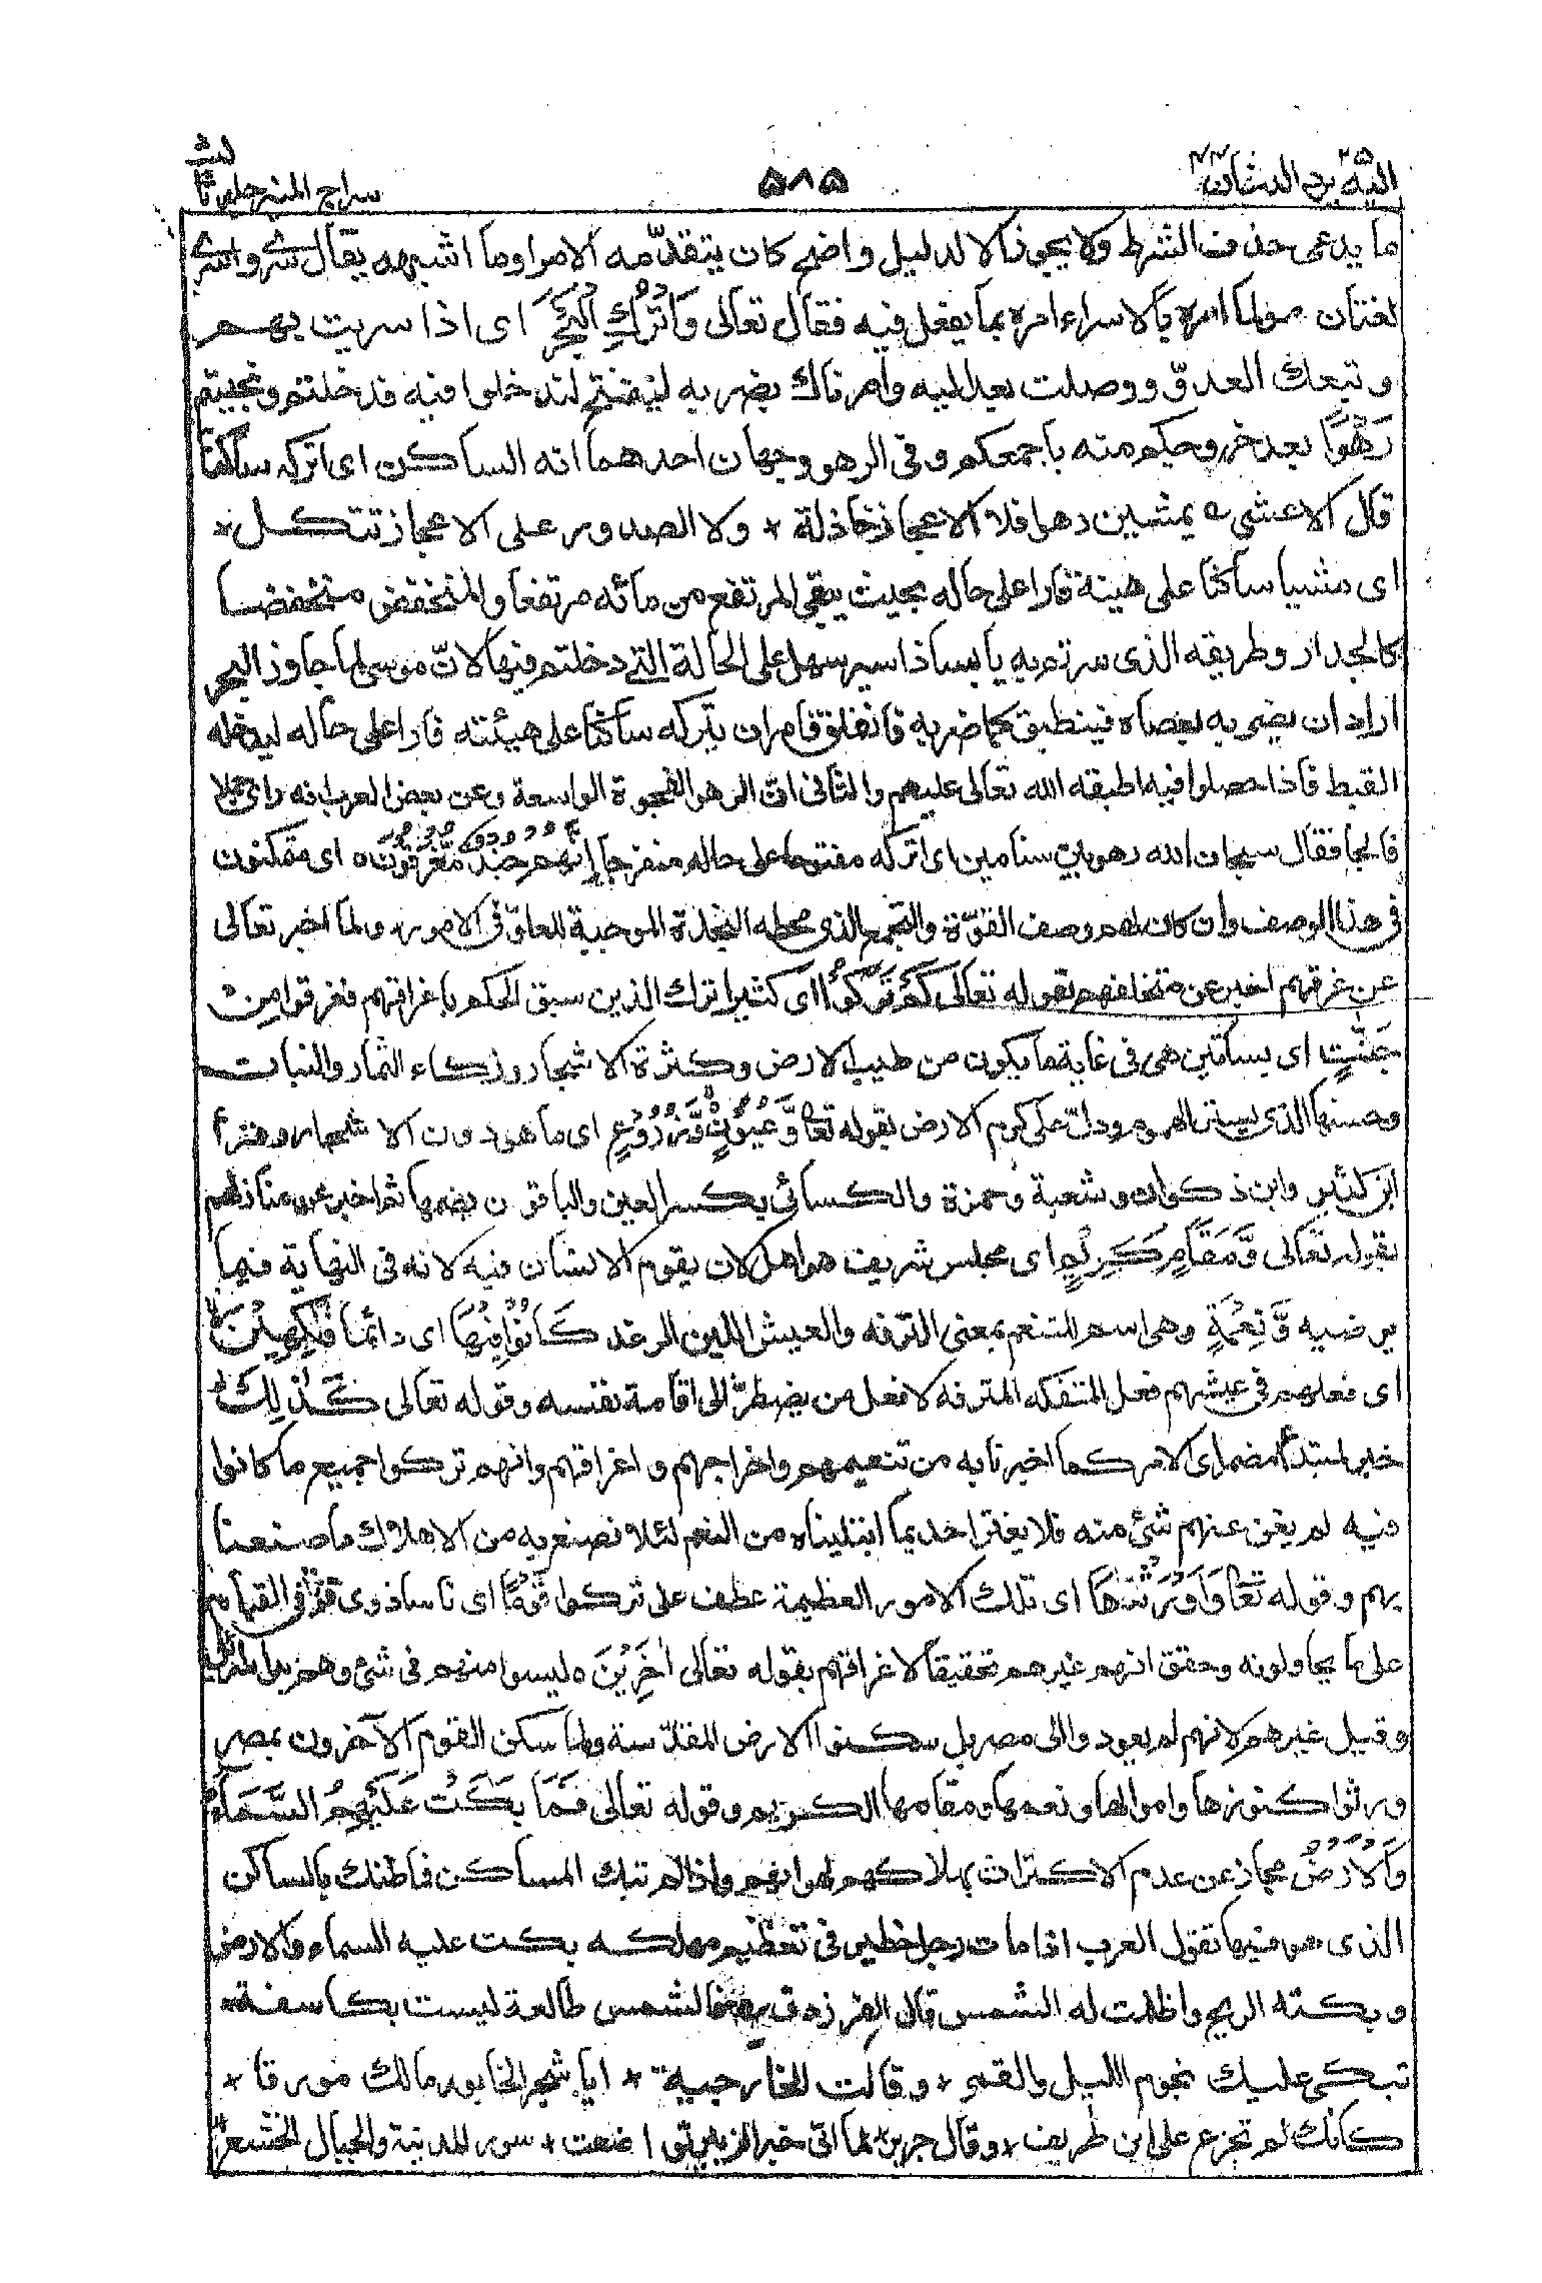 اليه يرد ٢٥ الدخان ٤٤
٥٨٥
سراج المنير جلد ثالث
ما يدعى حذف الشرط ولا يجوز الا لدليل واضح كان يتقدّمه الامر اوما اشبهه يقال سرى واسرى
لغتان ولما امره بالاسراء امره بما يفعل فيه فقال تعالى وَاتْرُكِ الْبَحْرَ اى اذا سريت بهم
وتبعك العدوّ ووصلت بعد اليه وامرناك بضربه لينفتح لتدخلوا فيه فدخلتم ونجيتم
رَهْوًا بعد خروجكم منه باجمعكم وفى الرهو وجهان احدهما انه الساكن اى اتركه ساكنا
قال الاعشى يمشين رهوا فلا الاعجاز خاذلة * ولا الصدور على الاعجاز تتكل *
اى مشيا ساكنا على هينة قارا على حاله بحيث يبقى المرتفع من مائه مرتفعا والمنخفض منخفضا
كالجدار وطريقه الذى سرتم به يابسا ذا سير سهل على الحالة التى دخلتم فيها لانّ موسى لما جاوز البحر
اراد ان يضربه بعصاه فينطبق كما ضربه فانفلق فامر ان يتركه ساكنا على هيئته قارا على حاله ليدخله
القبط فاذا حصلوا فيه اطبقه الله تعالى عليهم والثانى انّ الرهو الفجوة الواسعة وعن بعض العرب انه راى جملا
فالجا فقال سبحان الله رهو بين سنامين اى اتركه مفتوحا على حاله منفرجا إِنَّهُمْ جُنْدٌ مُّغْرَقُوْنَ ه اى متمكنون
فى هذا الوصف وان كان لهم وصف القوّة والتجمع الذى محطه النجدة الموجبة للعلوّ فى الامور ولما اخبر تعالى
عن غرقهم اخبر عن متخلفهم بقوله تعالى كَمْ تَرَكُوْا اى كثيرا ترك الذين سبق الحكم باغراقهم فغرقوا مِنْ
جَنّٰتٍ اى بساتين هى فى غاية ما يكون من طيب الارض وكثرة الاشجار وزكاء الثمار والنبات
وحسنها الذى يستر الهموم ودل على كرم الارض بقوله تعالى وَّعُيُوْنٍ وَّزُرُوْعٍ اى ما هو دون الاشجار وقرأ
ابن كثير وابن ذكوان وشعبة وحمزة والكسائى بكسر العين والباقون بضمها ثم اخبر عن منازلهم
بقوله تعالى وَّمَقَامٍ كَرِيْمٍ اى مجلس شريف هو اهل لان يقوم الانسان فيه لانه فى النهاية فيما
يرضيه وَّنِعْمَةٍ وهى اسم للتنعم بمعنى الترفه والعيش اللين الرغد كَانُوْا فِيْهَا اى دائما فٰكِهِيْنَ
اى فعلهم فى عيشهم فعل المتفكه المترفه لا فعل من يضطرّ الى اقامة نفسه وقوله تعالى كَذٰلِكَ
خبر لمبتدأ مضمر اى الامر كما اخبرنا به من تنعيمهم واخراجهم واغراقهم وانهم تركوا جميع ما كانوا
فيه لم يغن عنهم شئ منه فلا يغتر احد بما ابتليناه من النعم لئلا نصنع به من الاهلاك ما صنعنا
بهم وقوله تعالى وَاَوْرَثْنٰهَا اى تلك الامور العظيمة عطف على تركوا قَوْمًا اى ناسا ذوى قوّة فى القيام
على ما يحاولونه وحقق انهم غيرهم تحقيقا لاغراقهم بقوله تعالى اٰخَرِيْنَ ه ليسوا منهم فى شئ وهم بنو اسرائيل
وقيل غيرهم لانهم لم يعودوا الى مصر بل سكنوا الارض المقدّسة ولما سكن القوم الآخرون بمصر
ورثوا كنوزها واموالها ونعمها ومقامها الكريم وقوله تعالى فَمَا بَكَتْ عَلَيْهِمُ السَّمَآءُ
وَالْاَرْضُ مجاز عن عدم الاكتراث بهلاكهم لهوانهم واذا لم تبك المساكن فما ظنك بالساكن
الذى هو فيها تقول العرب اذا مات رجل خطير فى تعظيم مهلكه بكت عليه السماء والارض
وبكته الريح واظلمت له الشمس قال الفرزدق الشمس طالعة ليست بكاسفة *
تبكى عليك نجوم الليل والقمر * وقالت الخارجية * ايا شجر الخابور مالك مورقا *
كانك لم تجزع على ابن طريف * وقال جرير * لما اتى خبر الزبير تواضعت * سور المدينة والجبال الخشع